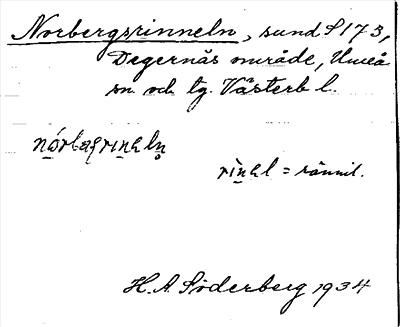 Norbergsrinneln, sund S 173,
Degernäs område, Umeå
sn. och tg. Västerb l.
rìnel = rännil.
H. A. Söderberg 1934